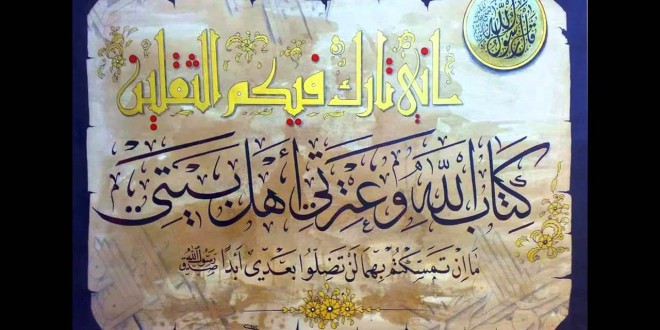 قال رسول الله
انی تارك فيكم الثقلين
كِتَابَ اللهِ وَعِتْرَتِي أَهْلَ بَيْتِي
مَا اِنْ تَمَسَّكْتُمْ بِهِمَا لَنْ تَضِلُّوا بَعْدِي أَبَدًا